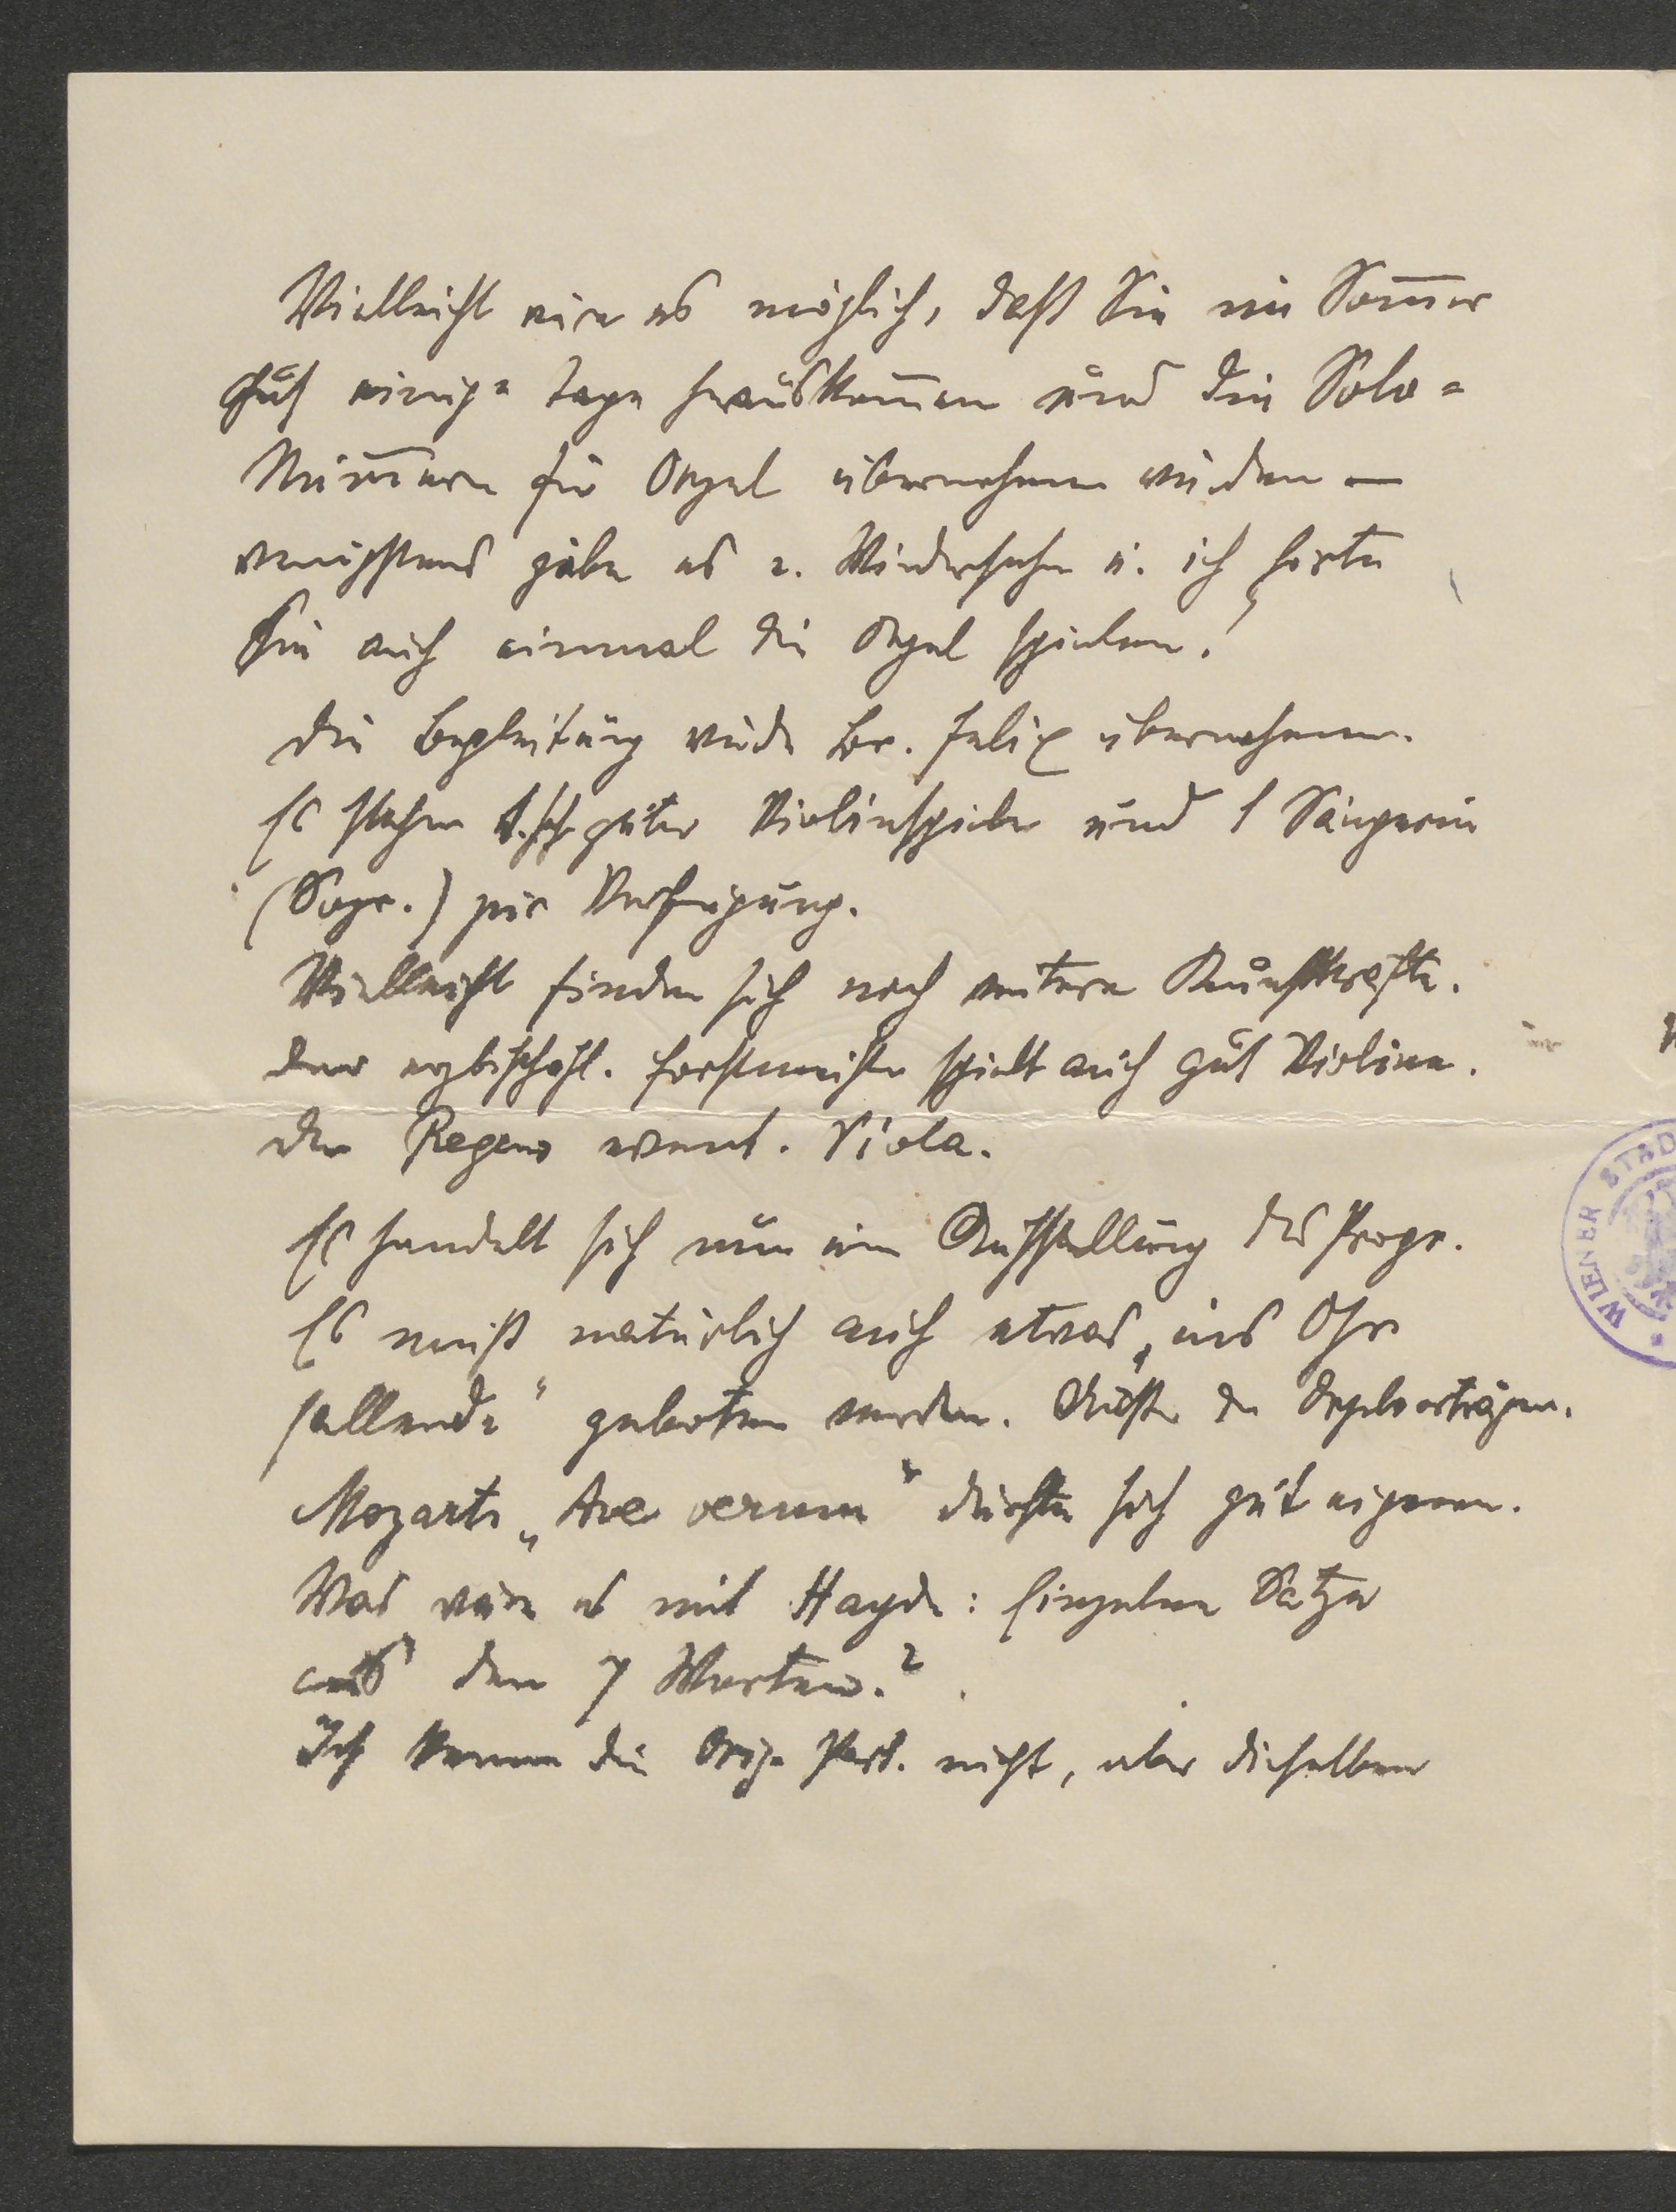 Vielleicht wäre es möglich, daß Sie im Som̅er
auf einige Tage herauskom̅en und die Solo=
Num̅ern für Orgel übernehmen würden —
wenigstens gäbe es e. Wiedersehen u. ich hörte
Sie auch einmal die Orgel spielen!
Die Begleitung würde Br. Felix übernehmen.
Es stehen guter Violinspieler und 1 Sängerin
(Sopr.) zur Verfügung.
Vielleicht finden sich noch weitere Kunstkräfte.
Der erzbischöfl. Forstmeister spielt auch gut Violine.
Der Regens event. Viola.
Es handelt sich nun um Aufstellung des Progr.
Es muß natürlich auch etwas „ins Ohr
fallende“ geboten werden. Außer den Orgelvorträgen.
Mozarts „Ave verum“ dürfte sich gut eignen.
Was wäre es mit Haydn: Einzelne Sätze
aus den 7 Worten?
Ich kenne die Orig. Part. nicht, aber dieselben
WIENER STAD